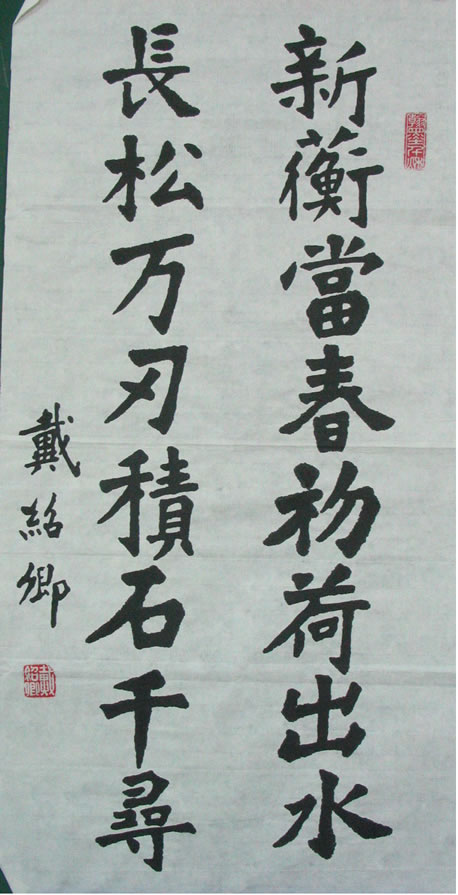 新蘅當春初荷出水
長松万刃積石千尋
戴紹卿